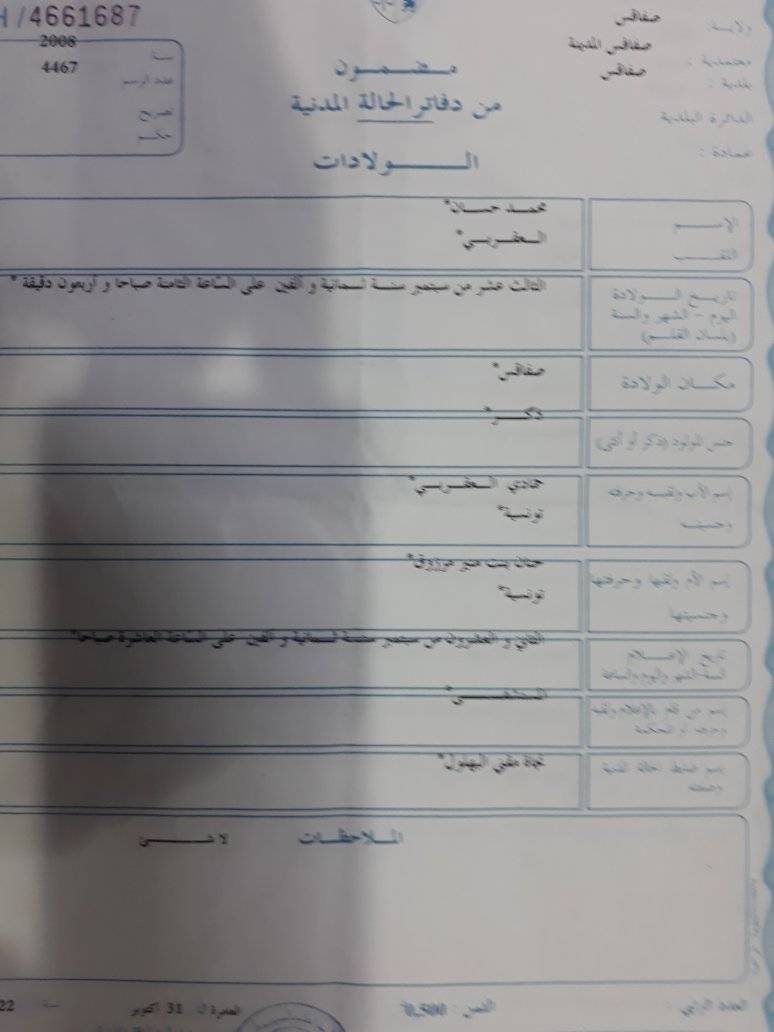 H/4661687
ولاية: صفاقس
معتمدية: صفاقس المدينة
بلدية: صفاقس
الدائرة البلدية
عمادة:
سنة 2008
عدد الرسم 4467
تصريح
حكم
مضمون
من دفاتر الحالة المدنية
الولادات
الإسم محمد حسان*
اللقب
تاريخ الولادة الثالث عشر من سبتمبر سنة ثمانية و ألفين على الساعة الثامنة صباحا و أربعون دقيقة *
اليوم - الشهر والسنة
(بلسان القلم)
مكان الولادة صفاقس*
جنس المولود (ذكر أو أنثى) ذكر*
إسم الأب ولقبه وحرفته حمادي
وجنسيته تونسية*
إسم الأم ولقبها وحرفتها حنان بنت مرزوق*
وجنسيتها تونسية*
تاريخ الإعلام الثاني و العشرون من سبتمبر سنة ثمانية و ألفين على الساعة العاشرة صباحا*
السنة الشهر واليوم والساعة
إسم من قام بالإعلام ولقبه المستشفى*
وحرفته أو المحكمة
إسم ضابط الحالة المدنية نجاة البهلول*
وصفته
الملاحظات لا شيئ
العدد الرتبي: الثمن: 0,500 31 أكتوبر سنة 22